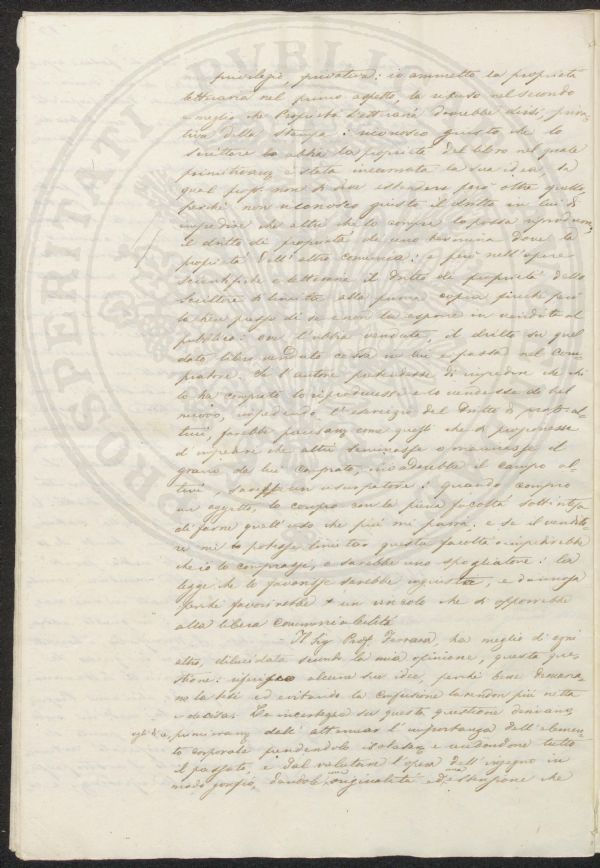 privilegî, privativa: io ammetto la proprietà
letteraria nel primo aspetto, la rifiuto nel secondo
o meglio che Proprietà Letteraria dovrebbe dirsi, priva-
tiva della stampa: riconosco giusto che lo
scrittore s'abbia la proprietà del libro nel quale
primitivam è stata incarnata la sua idea, la
qual propr. non si deve estendere però oltre quello
perché non riconosco giusto il dritto in lui di
impedire che altri che lo compri lo possa riprodurre,
Il dritto di proprietà di uno termina dove la
proprietà dell'altro comincia: e però nell'opere
scientifiche o letterarie il dritto di proprietà dello
scrittore si limita alla prima copia finché però
la tien presso di se e non la espone in vendita al
pubblico: ove l'abbia venduta, il dritto su quel
dato libro venduto cessa in lui e passa nel com-
pratore. Se l'autore pretendesse di impedire che chi
lo ha comprato lo riproducesse e lo vendesse di bel
nuovo, impedendo l'esercizio del dritto di propr. al-
trui, farebbe precisam come quegli che si proponesse
d'impedire che altri seminasse o macinasse il
grano da lui comprato, invaderebbe il campo al-
trui, sarebbe un usurpatore: quando compro
un oggetto, lo compro con la piena facoltà sottintesa
di farne quell'uso che più mi parrà: e se il vendito-
re mi potesse limitar questa facoltà o impedirebbe
che io lo comprassi, o sarebbe uno spogliatore: la
legge che lo favorisse sarebbe ingiusta, e dannosa
perché favorirebbe un vincolo che si opporrebbe
alla libera commerciabilità
– Il Sig Prof Ferrara ha meglio di ogni
altro, dilucidata secondo la mia opinione, questa que-
stione: riferisco alcune sue idee, perché bene demarca-
no la tesi ed evitando la confusione la rendon più netta
e decisa. Le incertezze su questa questione derivano,
egli dice, primieram dell'attenuar l'importanza dell'elemen-
to corporale prendendolo isolatam e vedendone tutto
il passato, e dal valutare l'opera dell'ingegno in
modo gonfio, dandole una originalità ed una estensione che
PROSPERITATI PVBLICAE